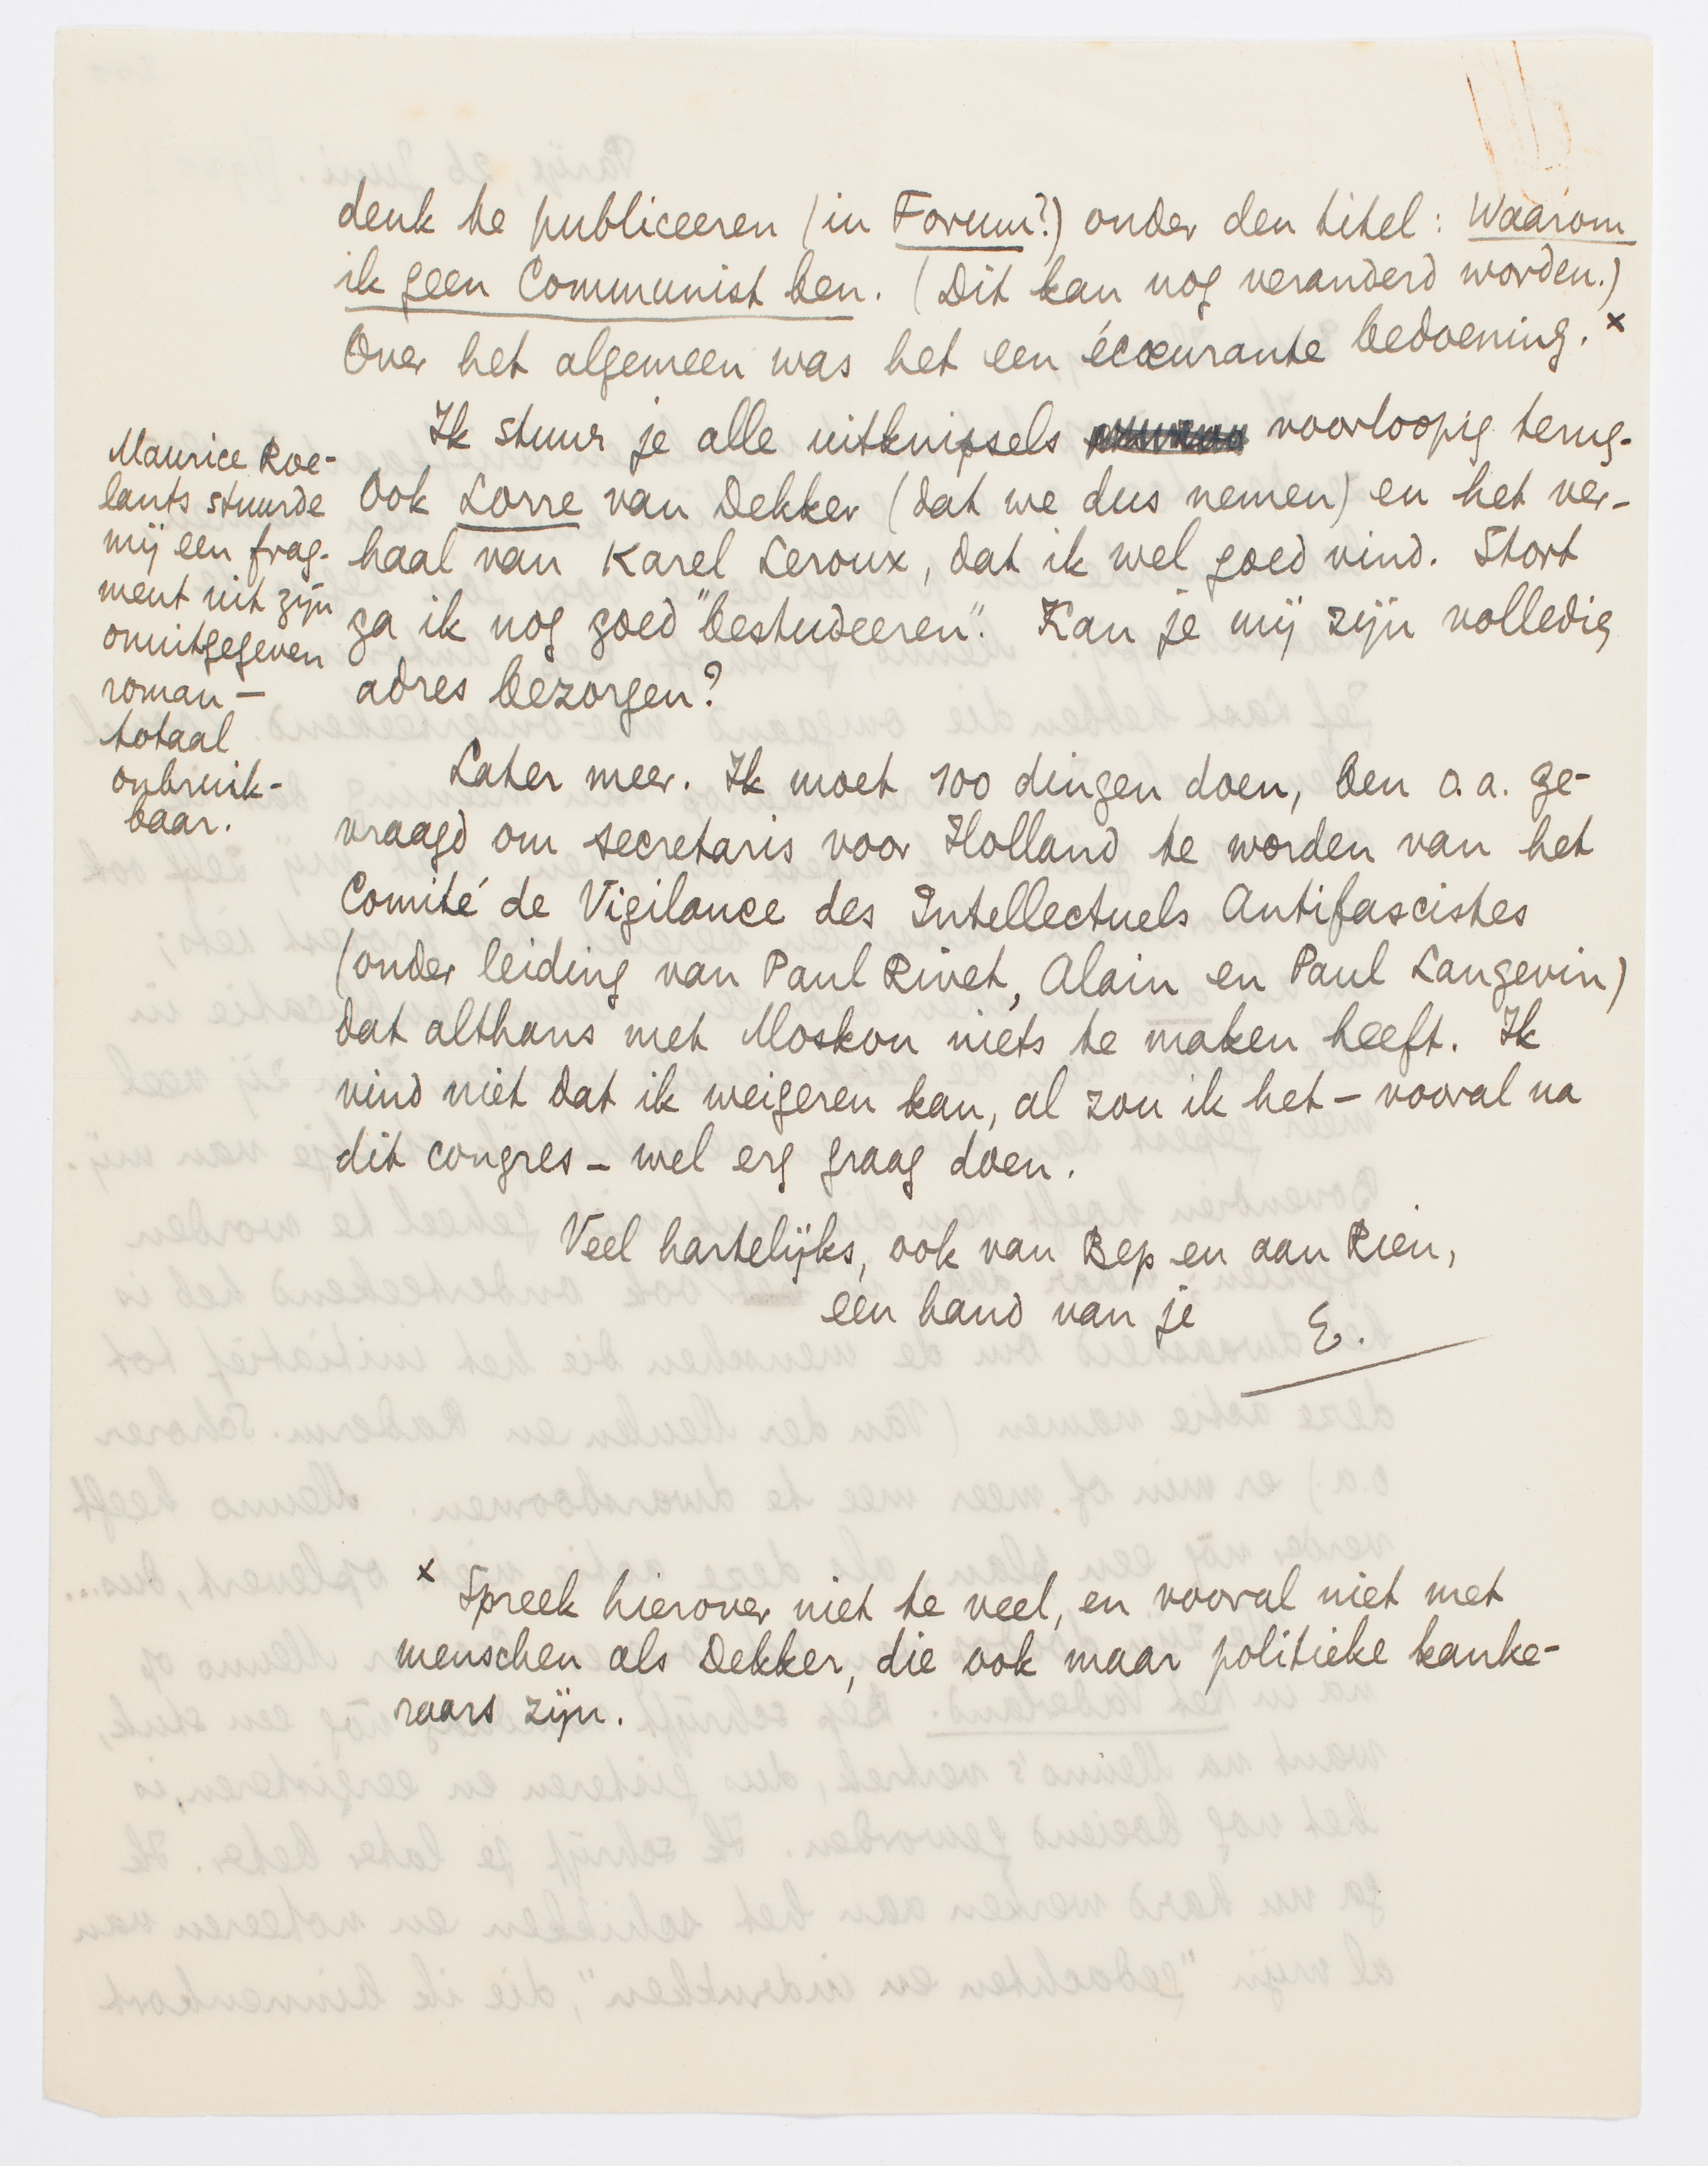 denk te publiceeren (in Forum?) onder den titel: Waarom
ik geen Communist ben. (Dit kan nog veranderd worden.)
Over het algemeen was het een écœurante bedoening. x
Ik stuur je alle uitknipsels voorloopig terug.
Ook Lorre van Dekker (dat we dus nemen) en het ver-
haal van Karel Leroux, dat ik wel goed vind. Stort
ga ik nog goed "bestudeeren". Kan je mij zijn volledig
adres bezorgen?
Maurice Roe-
lants stuurde
mij een frag-
ment uit zijn
onuitgegeven
roman —
totaal
onbruik-
baar.
Later meer. Ik moet 100 dingen doen, ben o.a. ge-
vraagd om secretaris voor Holland te worden van het
Comité de Vigilance des Intellectuels Antifascistes
(onder leiding van Paul Rivet, Alain en Paul Langevin)
dat althans met Moskou niets te maken heeft. Ik
vind niet dat ik weigeren kan, al zou ik het – vooral na
dit congres – wel erg graag doen.
Veel hartelijks, ook van Bep en aan Rien,
een hand van je
E.
x Spreek hierover niet te veel, en vooral niet met
menschen als Dekker, die ook maar politieke kanke-
raars zijn.